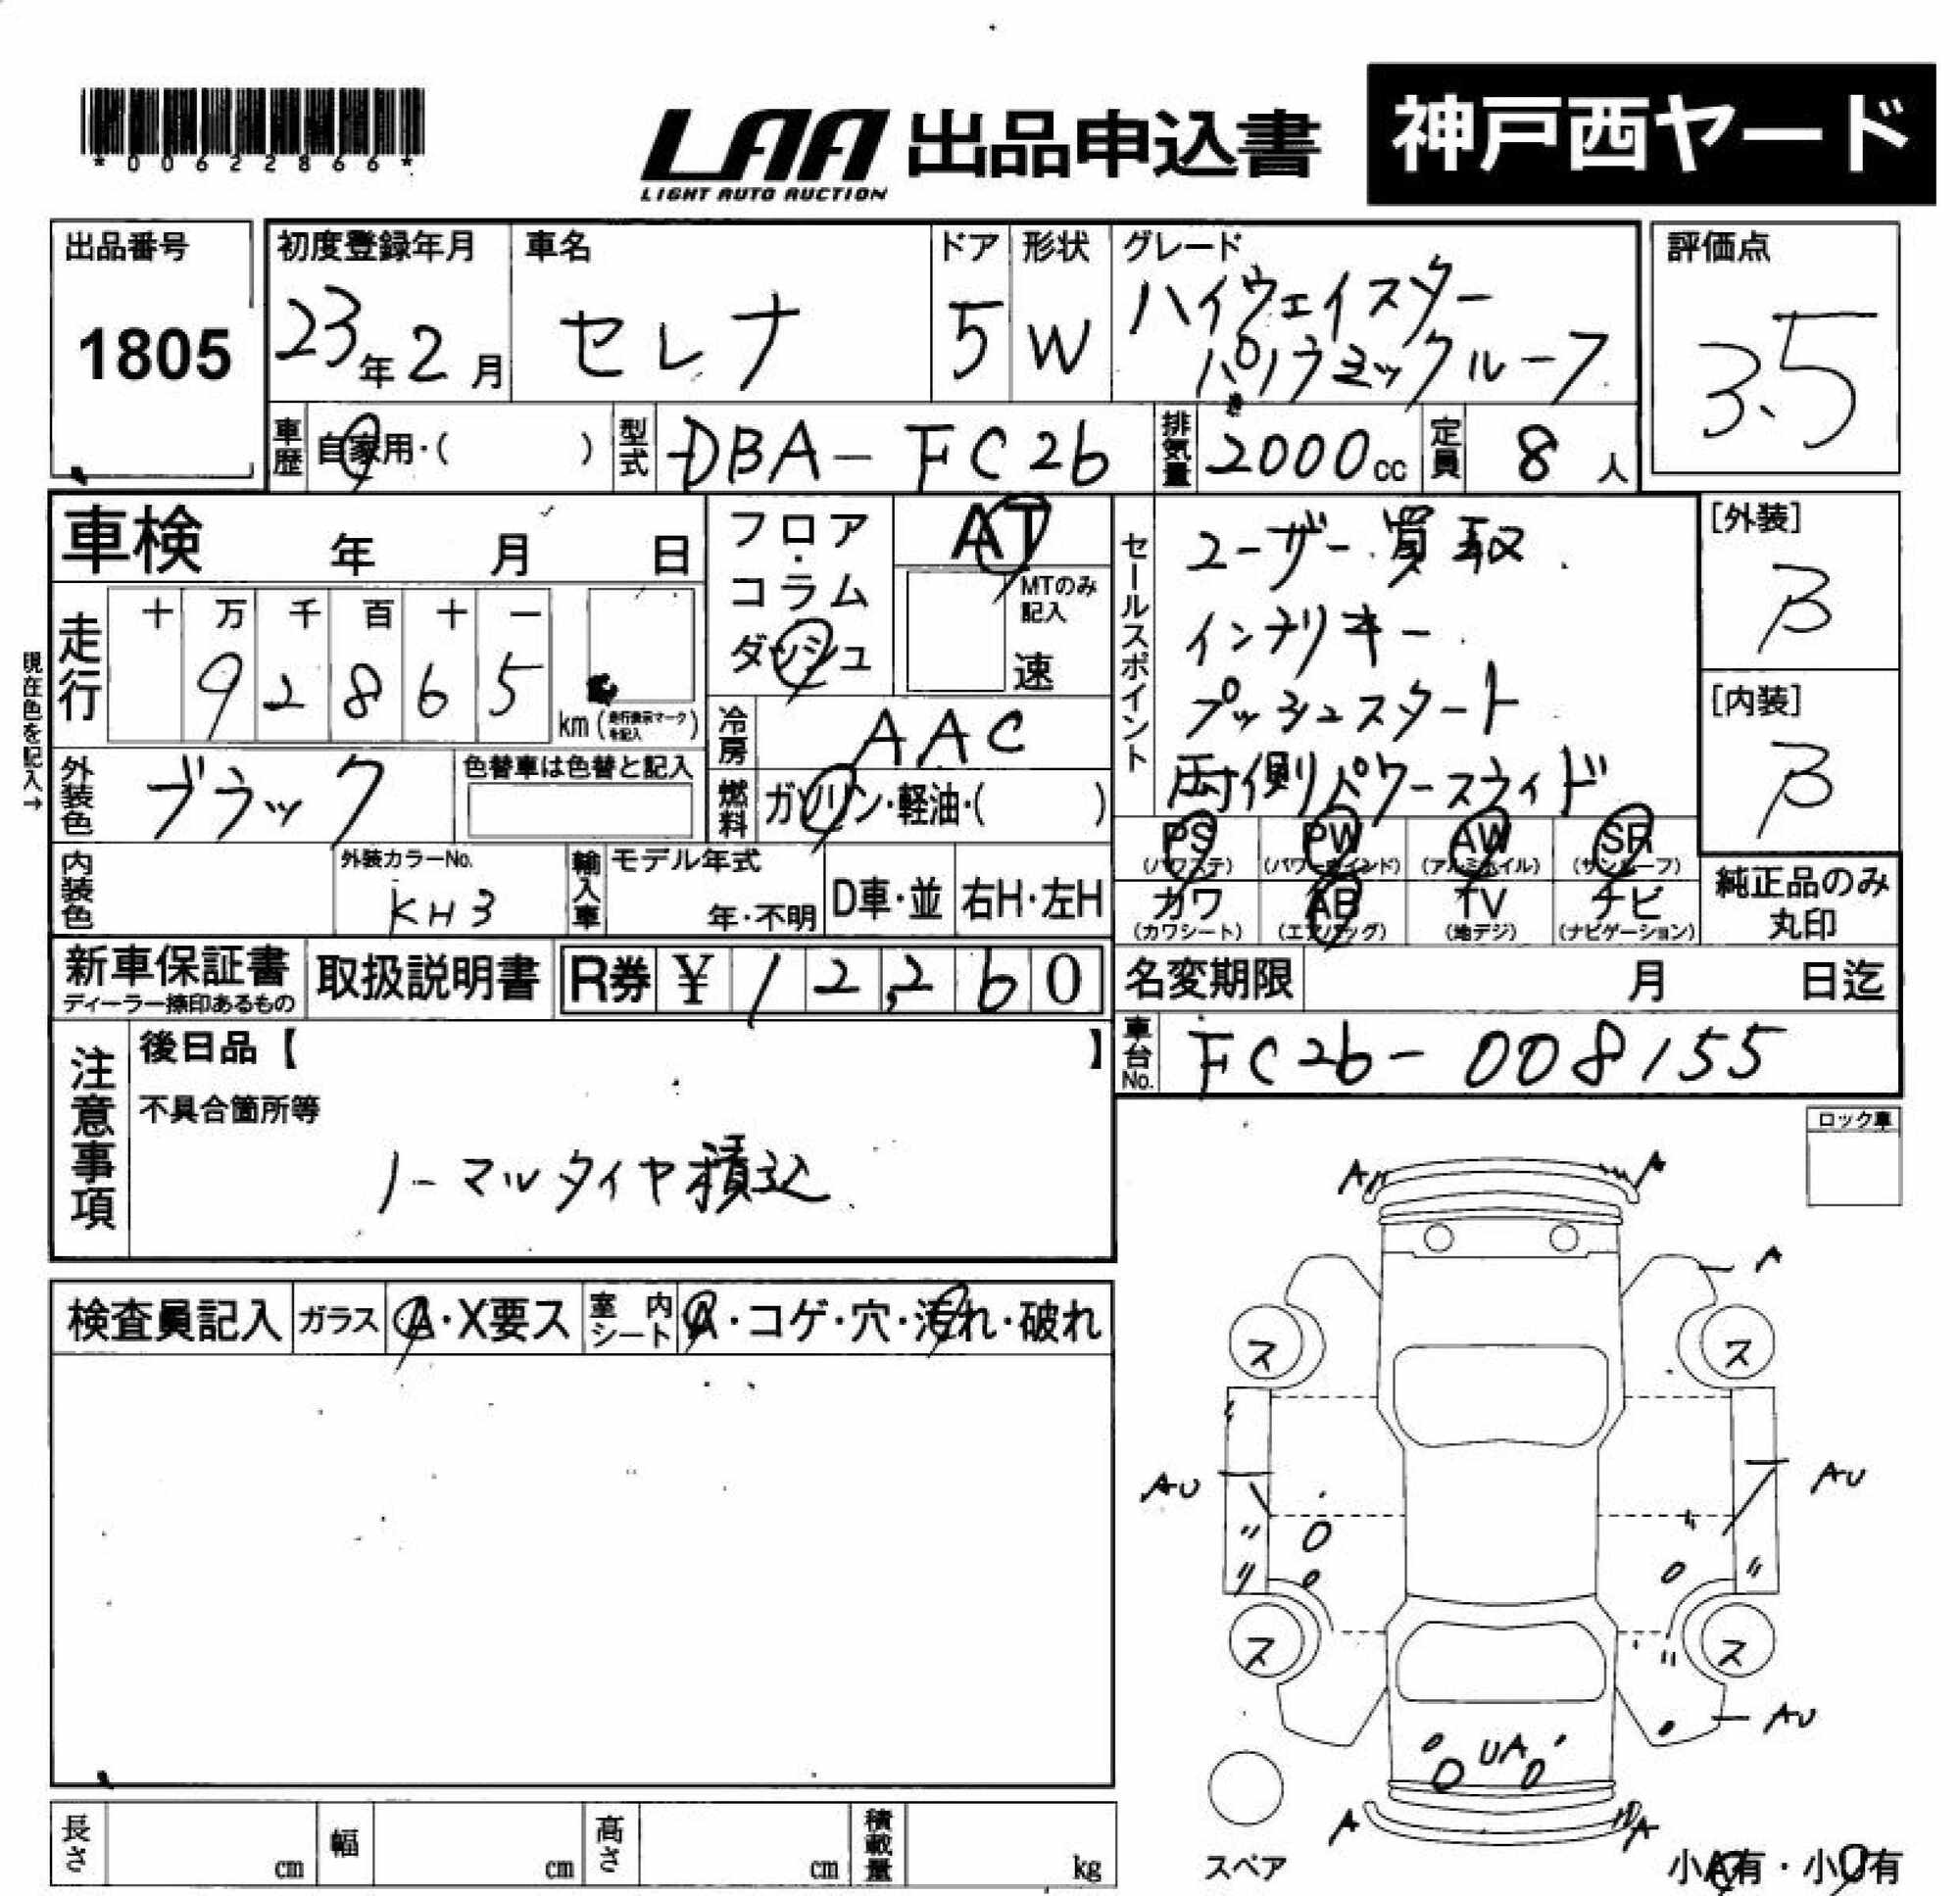 *00622866*
LAA 出品申込書
LIGHT AUTO AUCTION
神戸西ヤード
出品番号
1805
初度登録年月
23年2月
車名
セレナ
ドア
5
形状
W
グレード
ハイウェイスター
パノラミックルーフ
評価点
3.5
車歴
自家用・( )
型式
DBA-FC26
排気量
2000cc
定員
8人
車検 年 月 日
フロア・コラム
ダッシュ
AT
MTのみ記入
速
セールスポイント
ユーザー買取
インテリキー
プッシュスタート
両側パワースライド
[外装]
B
[内装]
B
現在色を記入→
走行
十万千百十一
92865
km(走行表示マークを記入)
冷房
AAC
外装色
ブラック
色替車は色替と記入
燃料
ガソリン・軽油・( )
PS PW AW SR
(パワステ) (パワーウインド) (アルミホイル) (サンルーフ)
カワ AB TV ナビ
(カワシート) (エアバッグ) (地デジ) (ナビゲーション)
純正品のみ丸印
内装色
外装カラーNo.
KH3
輸入車
モデル年式
年・不明
D車・並
右H・左H
新車保証書
ディーラー捺印あるもの
取扱説明書
R券 ¥12,260
名変期限 月 日迄
車台No.
FC26-008155
注意事項
後日品【 】
不具合箇所等
ノーマルタイヤ積込
ロック車
A A
A
ス ス
AU AU
〃 〃
〃 〃
ス ス
〃
AU
UA
A A
検査員記入
ガラス
A・X要ス
室内シート
A・コゲ・穴・汚れ・破れ
長さ cm
幅 cm
高さ cm
積載量 kg
スペア
小A有・小U有